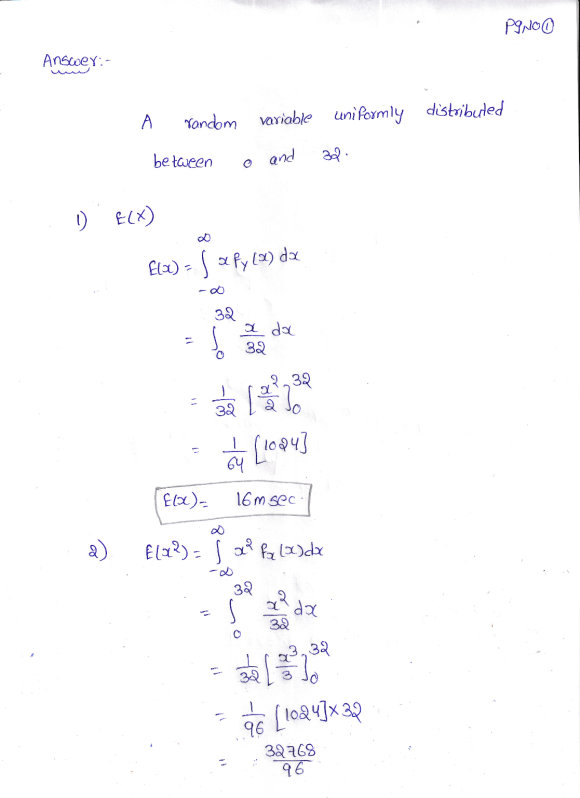 PgNO①
Answer:-
A random variable uniformly distributed
between 0 and 32.
1) E(X)
E(x) = ∫_{-∞}^{∞} x f_y(x) dx
= ∫_0^{32} x/32 dx
= 1/32 [x²/2]_0^{32}
= 1/64 [1024]
E(x) = 16m sec.
2) E(x²) = ∫_{-∞}^{∞} x² f_x(x) dx
= ∫_0^{32} x²/32 dx
= 1/32 [x³/3]_0^{32}
= 1/96 [1024] × 32
= 32768/96